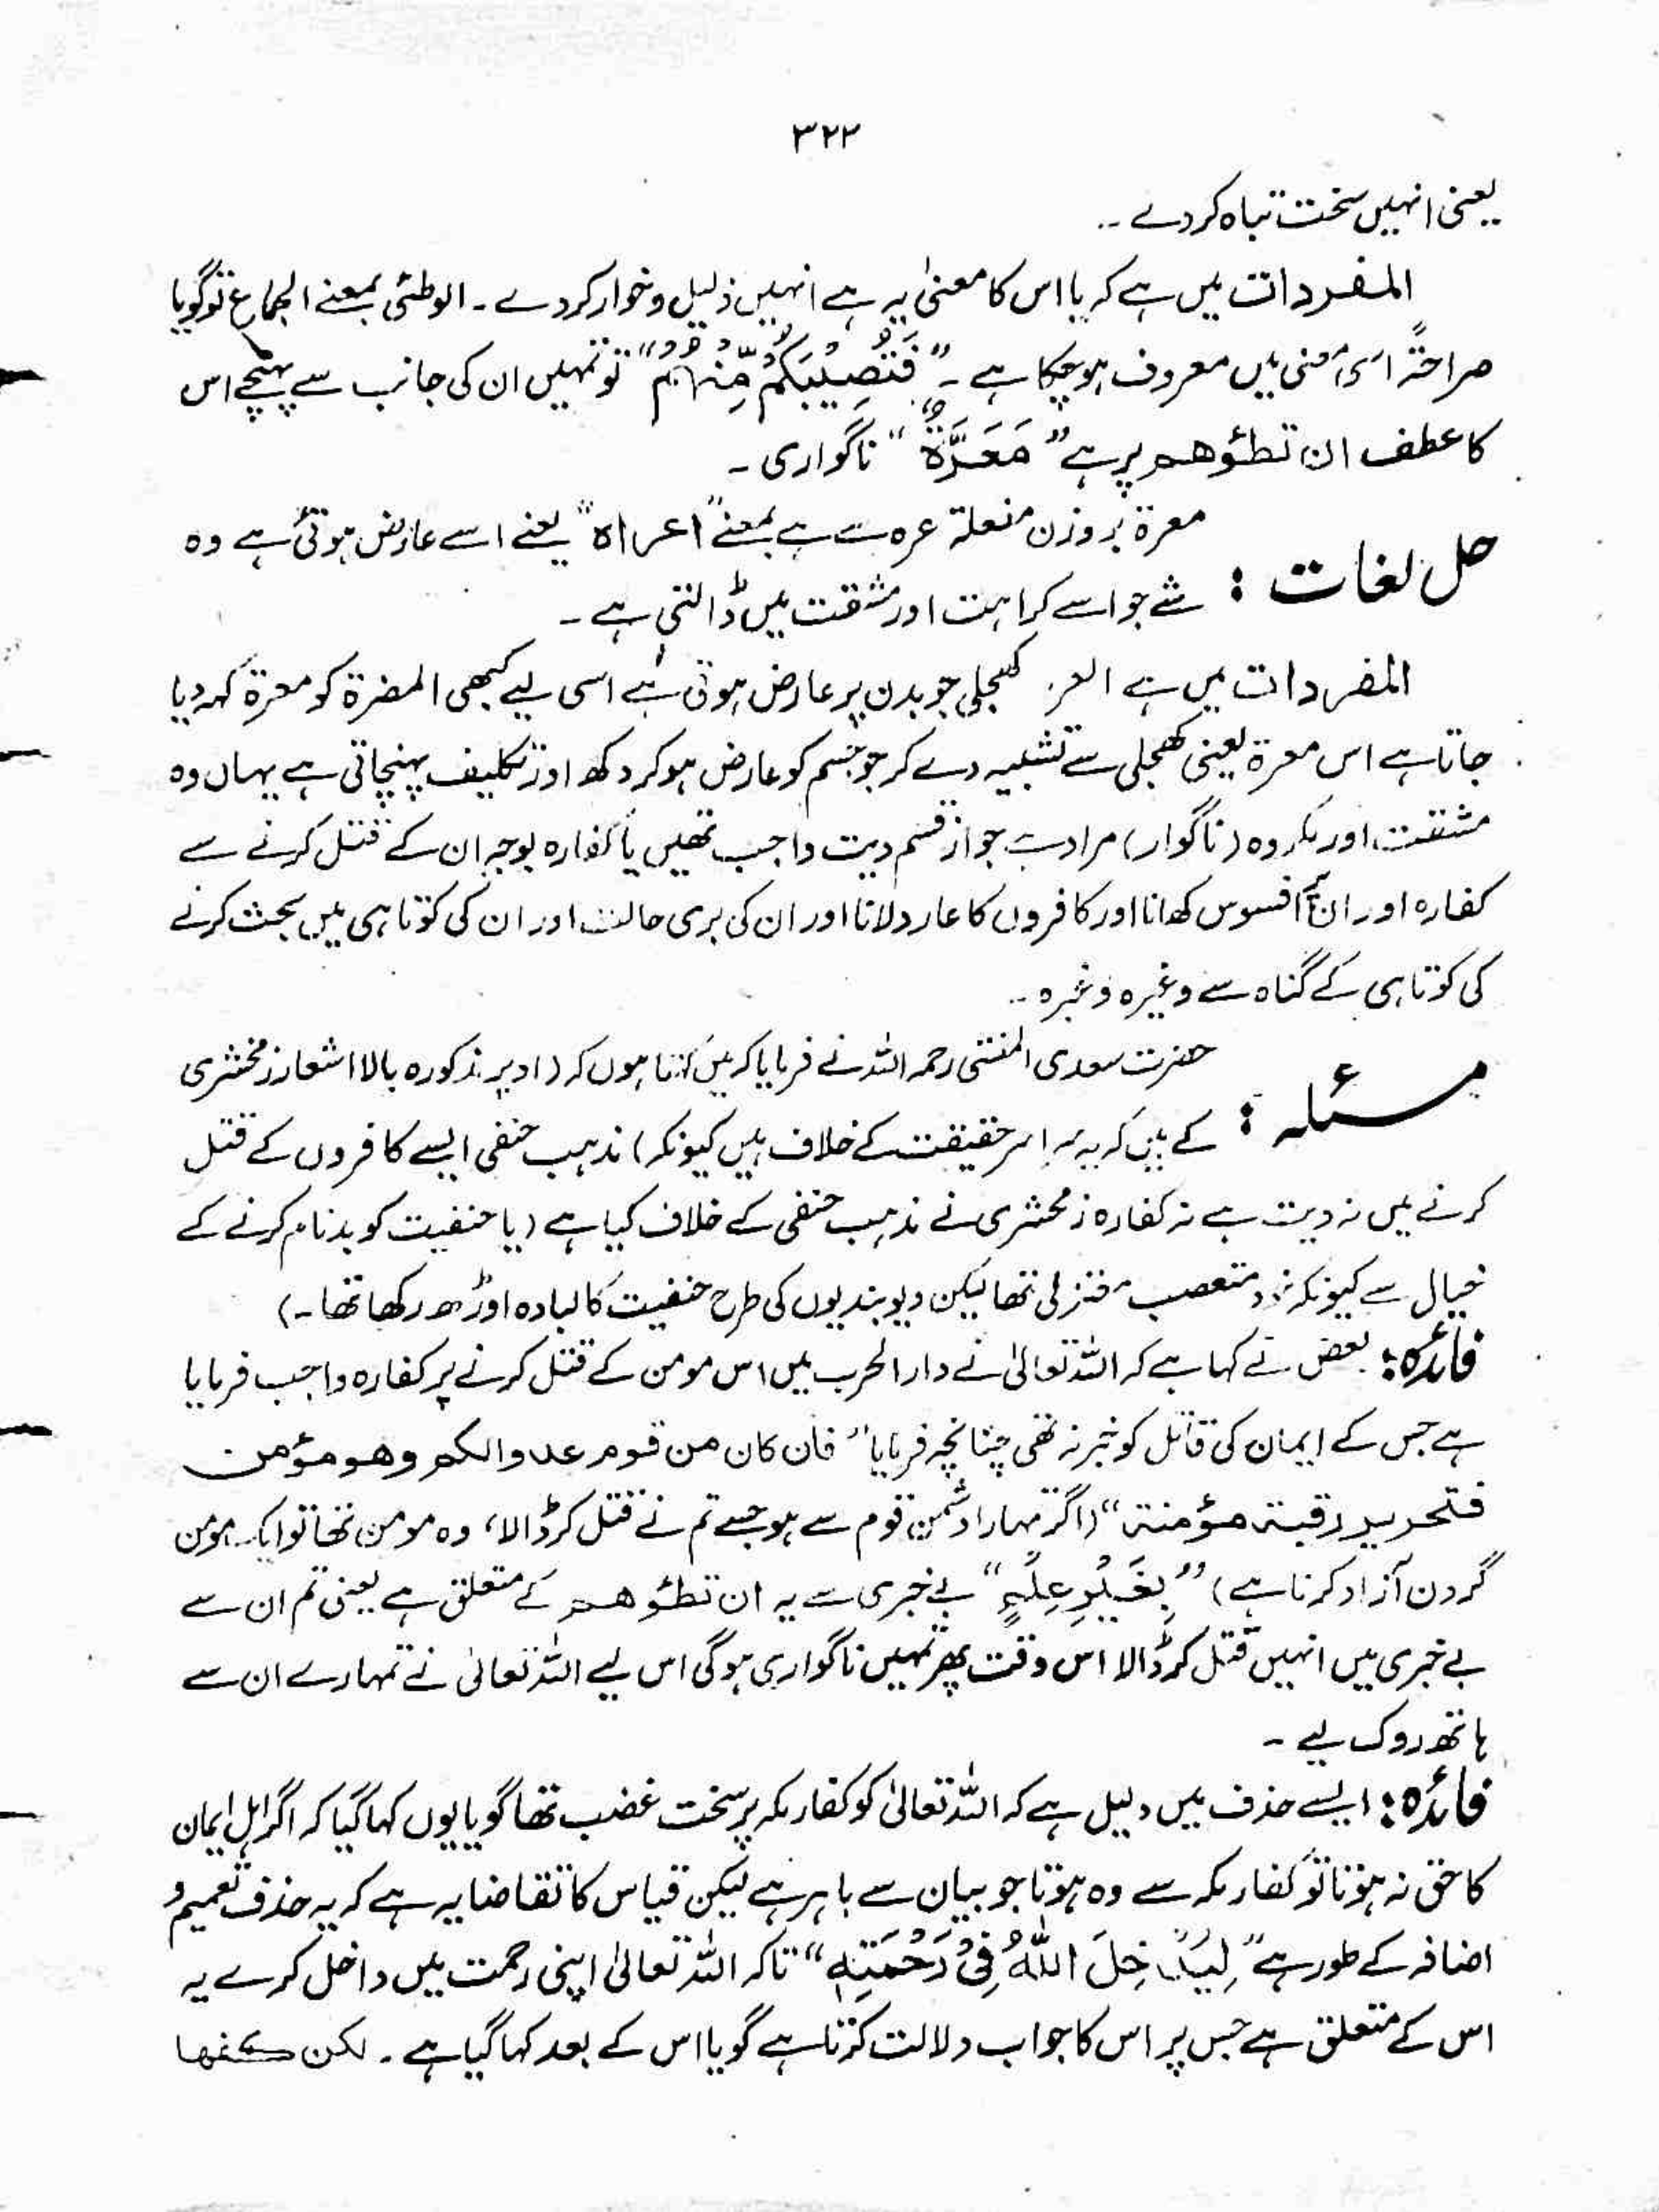 ۳۲۲
یعنی انہیں سخت تباہ کردے ۔۔
المفردات میں ہے کہ یا اس کا معنیٰ یہ ہے انہیں ذلیل وخوار کردے ۔ الوطئی بمعنے الجماع تو گویا
صراحتہً اسی معنی میں معروف ہوچکا ہے ۔ ”فَتُصِيْبَكُمْ مِّنْهُمْ“ تو تمہیں ان کی جانب سے پہنچے اس
کا عطف ان تطؤھم پر ہے ”مَعَرَّةٌ“ ناگواری ۔
حل لغات : معرۃ بروزن مفعلۃ عرہ سے ہے بمعنے ”اعراہ“ یعنے اسے عارض ہوتی ہے وہ
شے جو اسے کراہت اور مشقت میں ڈالتی ہے ۔
المفردات میں ہے العر کھجلی جو بدن پر عارض ہوتی ہے اسی لیے کبھی المضرۃ کو معرۃ کہہ دیا
جاتا ہے اس معرۃ یعنی کھجلی سے تشبیہ دے کر جو جسم کو عارض ہوکر دکھ اور تکلیف پہنچاتی ہے یہاں وہ
مشقت اور مکروہ (ناگوار) مراد ہے جو از قسم دیت واجب تھیں یا کفارہ بوجہ ان کے قتل کرنے سے
کفارہ اور ان افسوس کھانا اور کافروں کا عار دلانا اور ان کی بری حالت اور ان کی کوتاہی میں بحث کرنے
کی کوتاہی کے گناہ سے وغیرہ وغیرہ ۔۔
مسئلہ : حضرت سعدی المفتی رحمہ اللہ نے فرمایا کہ میں کہتا ہوں کہ (اوپر مذکورہ بالا اشعار زمخشری
کے ہیں کہ یہ سراسر حقیقت کے خلاف ہیں کیونکہ) مذہب حنفی ایسے کافروں کے قتل
کرنے میں نہ دیت ہے نہ کفارہ زمخشری نے مذہب حنفی کے خلاف کیا ہے (یا حنفیت کو بدنام کرنے کے
خیال سے کیونکہ خود متعصب معتزلی تھا لیکن دیوبندیوں کی طرح حنفیت کا لبادہ اوڑھ رکھا تھا ۔)
فائدہ : بعض نے کہا ہے کہ اللہ تعالیٰ نے دارالحرب میں اس مومن کے قتل کرنے پر کفارہ واجب فرمایا
ہے جس کے ایمان کی قاتل کو خبر نہ تھی چنانچہ فرمایا ”فان کان من قوم عدو الکم وھو مؤمن
فتحریر رقبۃ مؤمنۃ“ (اگر تمہارا دشمن قوم سے ہو جسے تم نے قتل کر ڈالا، وہ مومن تھا تو ایک مومن
گردن آزاد کرنا ہے) ”بِغَيْرِ عِلْمٍ“ بے خبری سے یہ ان تطؤھم کے متعلق ہے یعنی تم ان سے
بے خبری میں انہیں قتل کر ڈالا اس وقت پھر تمہیں ناگواری ہوگی اس لیے اللہ تعالیٰ نے تمہارے ان سے
ہاتھ روک لیے ۔
فائدہ : ایسے حذف میں دلیل ہے کہ اللہ تعالیٰ کو کفار مکہ پر سخت غضب تھا گویا یوں کہا گیا کہ اگر اہل ایمان
کا حق نہ ہوتا تو کفار مکہ سے وہ ہوتا جو بیان سے باہر ہے لیکن قیاس کا تقاضا یہ ہے کہ یہ حذف تعمیم و
اضافہ کے طور ہے ”لِيُدْخِلَ اللّٰهُ فِيْ رَحْمَتِهٖ“ تاکہ اللہ تعالیٰ اپنی رحمت میں داخل کرے یہ
اس کے متعلق ہے جس پر اس کا جواب دلالت کرتا ہے گویا اس کے بعد کہا گیا ہے ۔ لکن کفھا